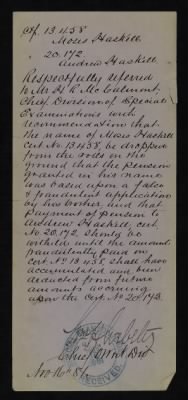 Ctf. 13458
Moses Haskell
20.172
Andrew Haskell
Respectfully referred
to Mr. H. R. McCalmont,
Chief Division of Special
Examinations with
recommendation that
the name of Moses Haskell
Cert No. 13458, be dropped
from the rolls on the
ground that the pension
granted in his name
was based upon a false
& fraudulent application
by his brother, and that
payment of pension to
Andrew Haskell, cert.
No 20.172 should be
withheld until the amount
fraudulently paid on
cert. No 13458 shall have
accumulated and been
deducted from future
amounts accruing
upon the Cert. No 20,172.
Chief West Div
Nov 16th
RECEIVED